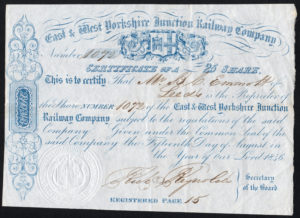 East & West Yorkshire Junction Railway Company
Number 1072
CERTIFICATE OF A 25 SHARE.
This is to certify That Mr
Leeds is the Proprietor of
the Share NUMBER 1072 of the East & West Yorkshire Junction
Railway Company subject to the regulations of the said
Company Given under the Common Seal of the
said Company the Fifteenth Day of August in
the Year of our Lord 1846
Secretary
of the Board
REGISTERED PAGE 15